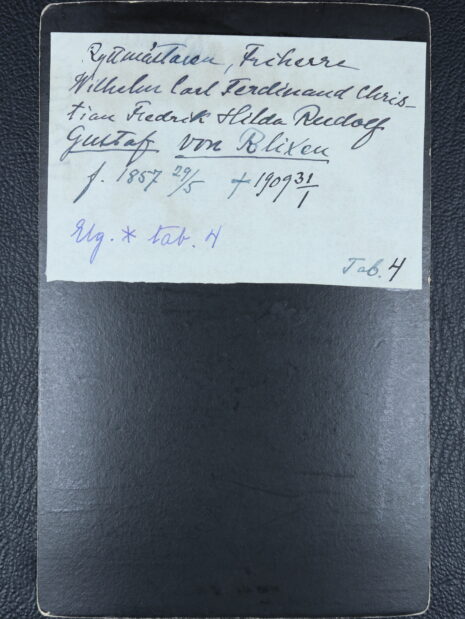 Ryttmästaren, Friherre
Wilhelm Carl Ferdinand Chris-
tian Fredrik Hilda Rudolf
Gustaf von Blixen
f. 1857 29/5 † 1909 31/1
Elg. * tab. 4
Tab. 4